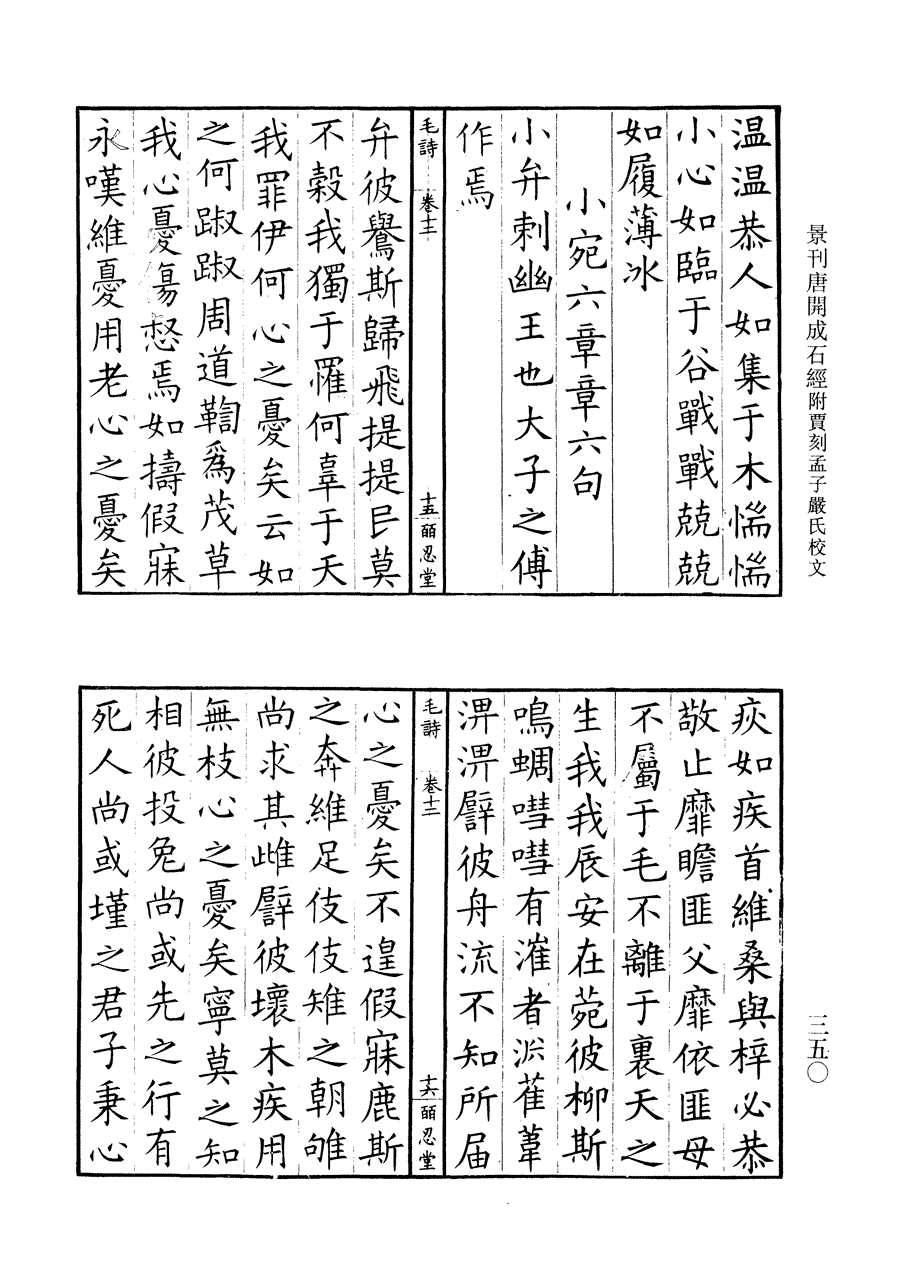 景刊唐開成石經附賈刻孟子嚴氏校文
三五〇
温温恭人如集于木惴惴
小心如臨于谷戰戰兢兢
如履薄冰
小宛六章章六句
小弁刺幽王也大子之傅
作焉
毛詩 卷十二 十五 皕忍堂
弁彼鸒斯歸飛提提民莫
不穀我獨于罹何辜于天
我罪伊何心之憂矣云如
之何踧踧周道鞫爲茂草
我心憂傷惄焉如擣假寐
永嘆維憂用老心之憂矣
疢如疾首維桑與梓必恭
敬止靡瞻匪父靡依匪母
不屬于毛不離于裏天之
生我我辰安在菀彼柳斯
鳴蜩嘒嘒有漼者淵萑葦
淠淠譬彼舟流不知所届
毛詩 卷十二 十六 皕忍堂
心之憂矣不遑假寐鹿斯
之奔維足伎伎雉之朝雊
尚求其雌譬彼壞木疾用
無枝心之憂矣寧莫之知
相彼投兔尚或先之行有
死人尚或墐之君子秉心